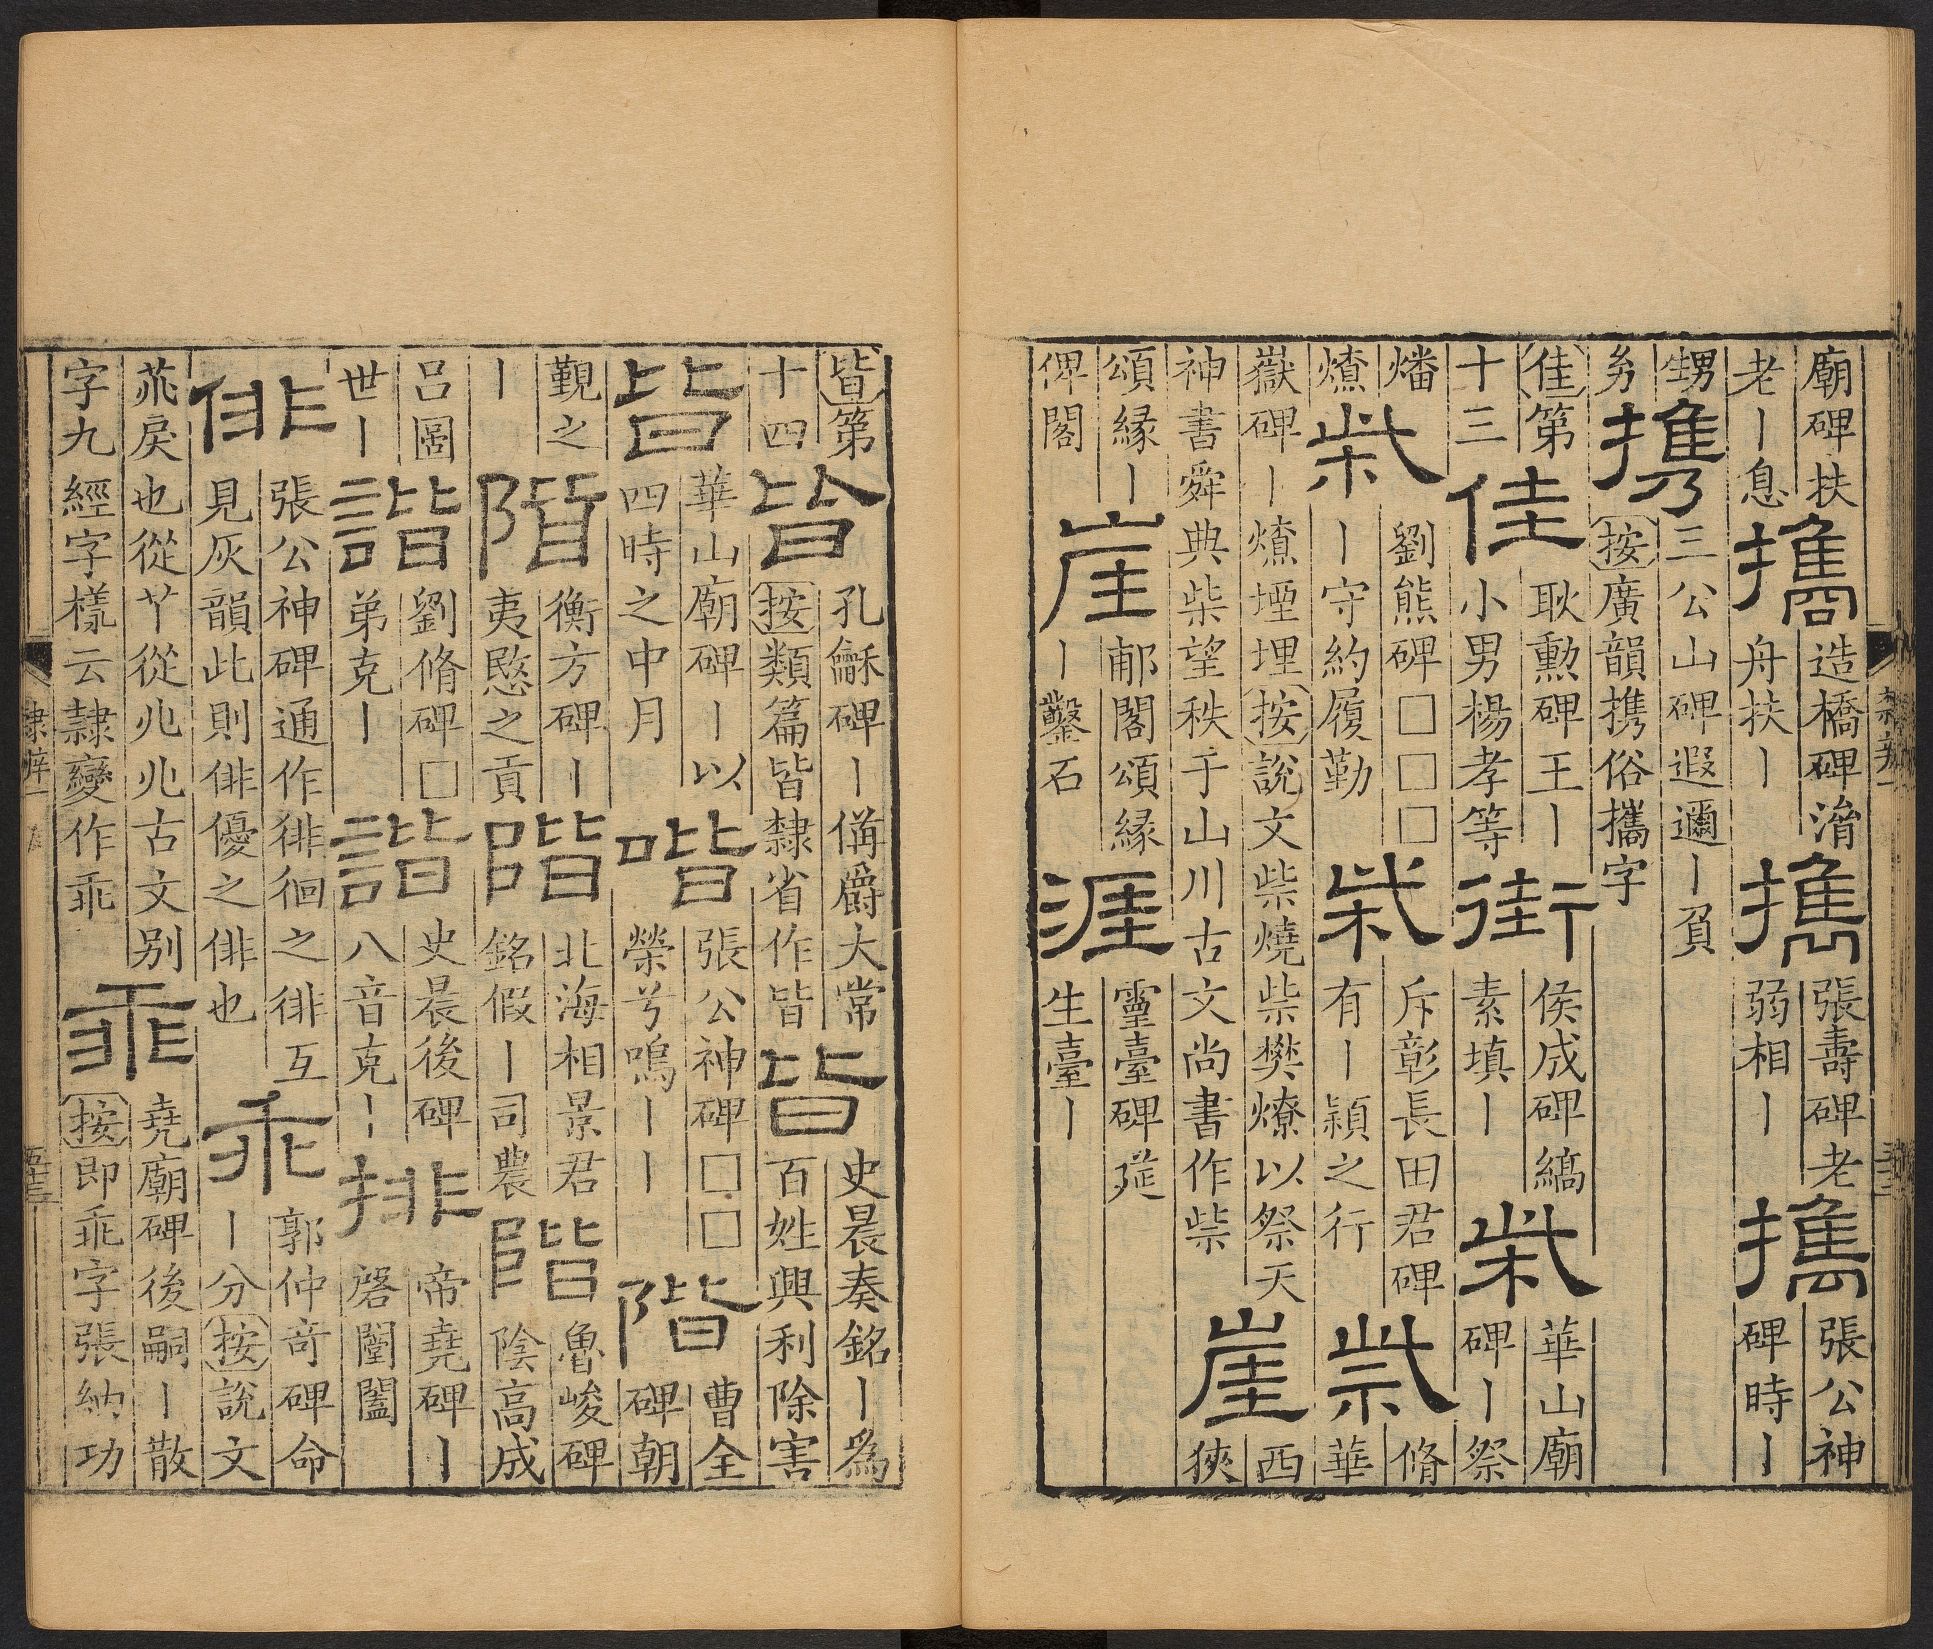 廟碑扶
老丨息
攜
造橋碑渞
舟扶丨
攜
張壽碑老
弱相丨
攜
張公神
碑時丨
甥
攜
三公山碑遐邇丨負
按廣韻携俗攜字
佳第
十三
佳
耿勳碑王丨
小男楊孝等
街
侯成碑縞
素填丨
柴
華山廟
碑丨祭
燔
燎
柴
劉熊碑□□□
丨守約履勤
柴
斥彰長田君碑
有丨穎之行
祡
脩
華
嶽碑丨燎堙埋按說文祡燒柴樊燎以祭天
神書舜典柴望秩于山川古文尚書作祡
崖
西
狹
頌縁丨
俾閣
崖
郙閣頌縁
丨鑿石
涯
靈臺碑莚
生臺丨
皆第
十四
皆
孔龢碑丨偁爵大常
按類篇皆隸省作皆
皆
史晨奏銘丨為
百姓興利除害
皆
華山廟碑丨以
四時之中月
喈
張公神碑□□
榮兮鳴丨丨
階
曹全
碑朝
覲之
丨
階
衡方碑丨
夷愍之貢
階
北海相景君
銘假丨司農
階
魯峻碑
陰高成
呂圖
世丨
諧
劉脩碑□
弟克丨
諧
史晨後碑
八音克丨
排
帝堯碑丨
啓闓闔
俳
張公神碑通作徘徊之徘互
見灰韻此則俳優之俳也
乖
郭仲奇碑命
丨分按說文
戾也從丫從兆兆古文别
字九經字樣云隸變作乖
乖
堯廟碑後嗣丨散
按即乖字張納功